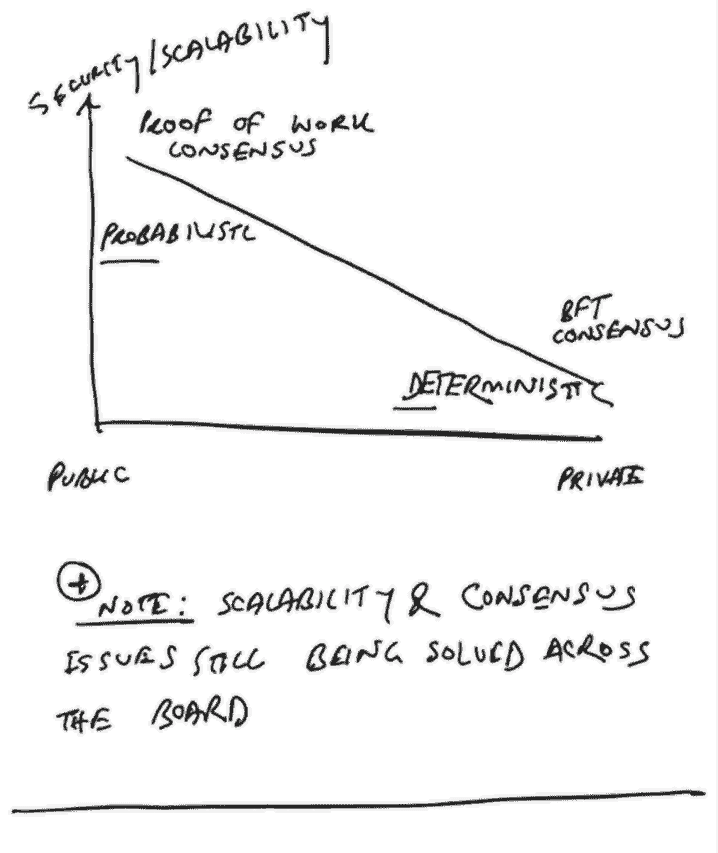 SECURITY/SCALABILITY
PROOF OF WORK
CONSENSUS
PROBABILISTIC
BFT
CONSENSUS
DETERMINISTIC
PUBLIC
PRIVATE
+
NOTE: SCALABILITY & CONSENSUS
ISSUES STILL BEING SOLVED ACROSS
THE BOARD